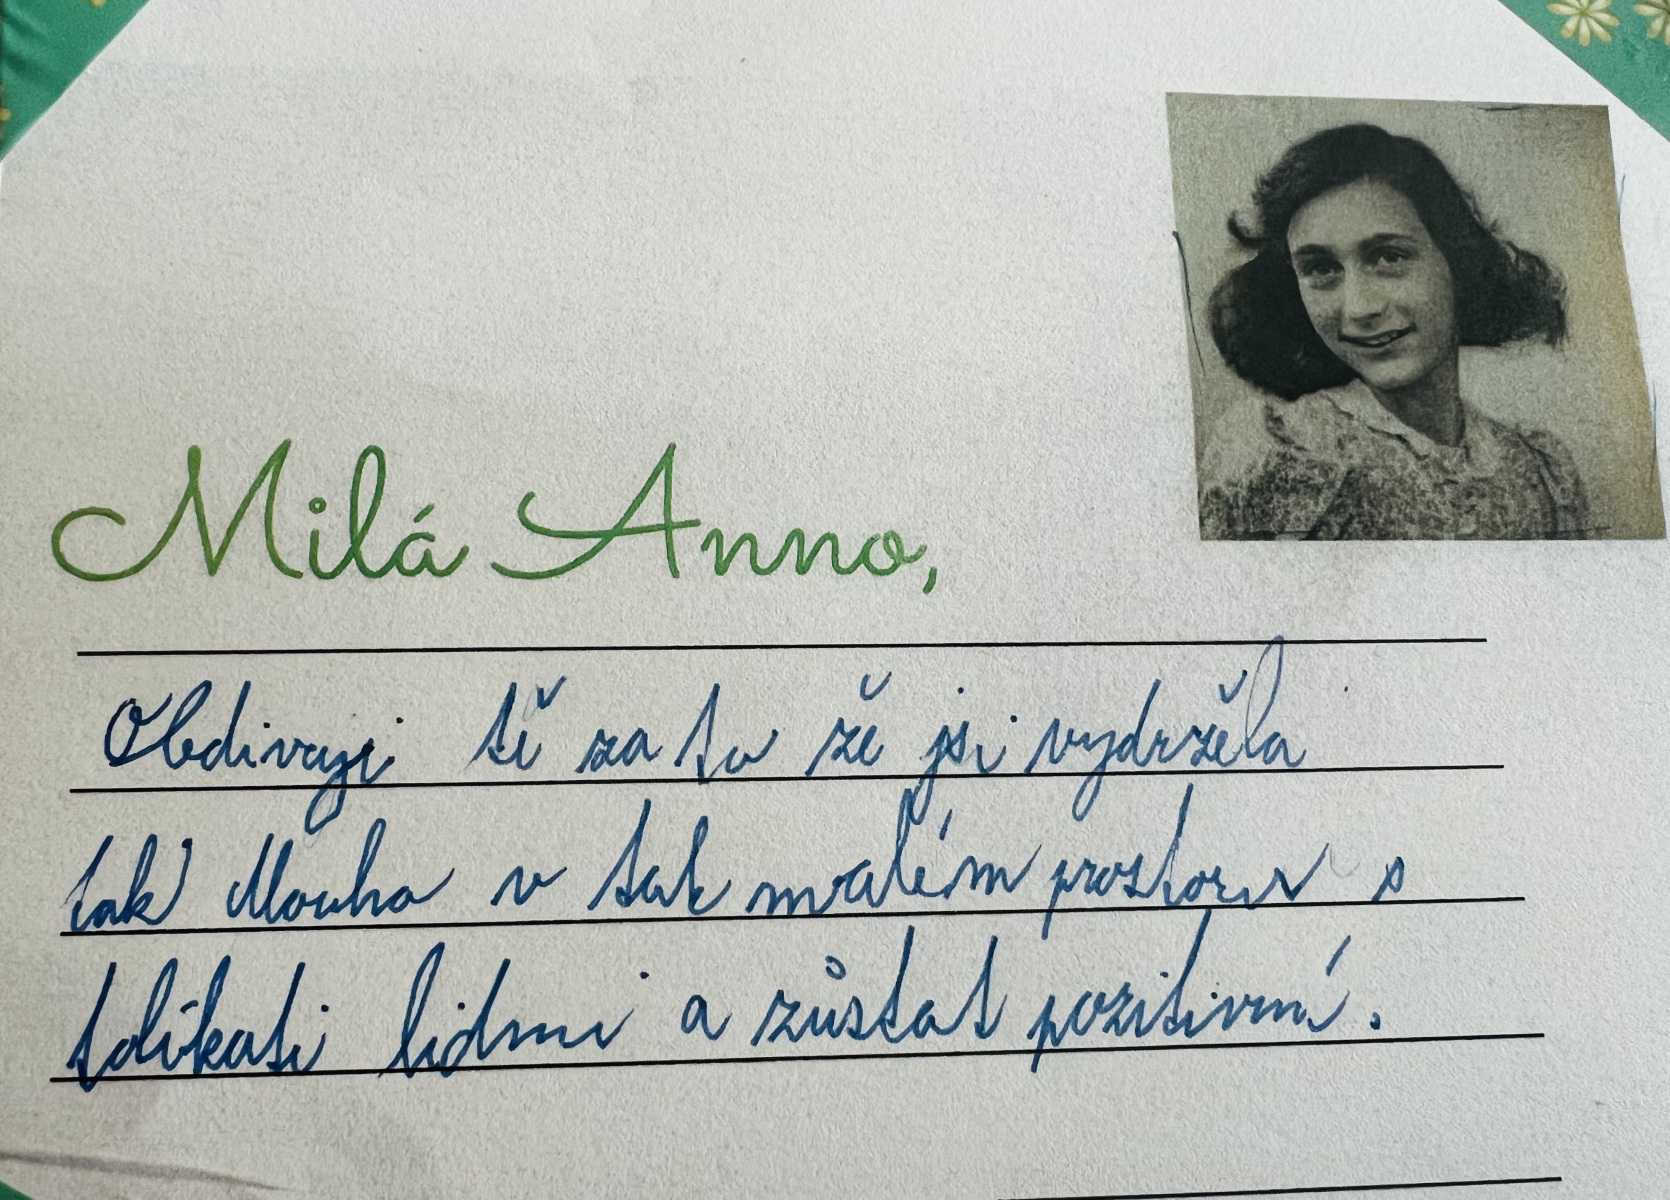 Milá Anno,
Obdivuji tě za to že jsi vydržela
tak dlouho v tak malém prostoru s
tolikati lidmi a zůstat pozitivní.